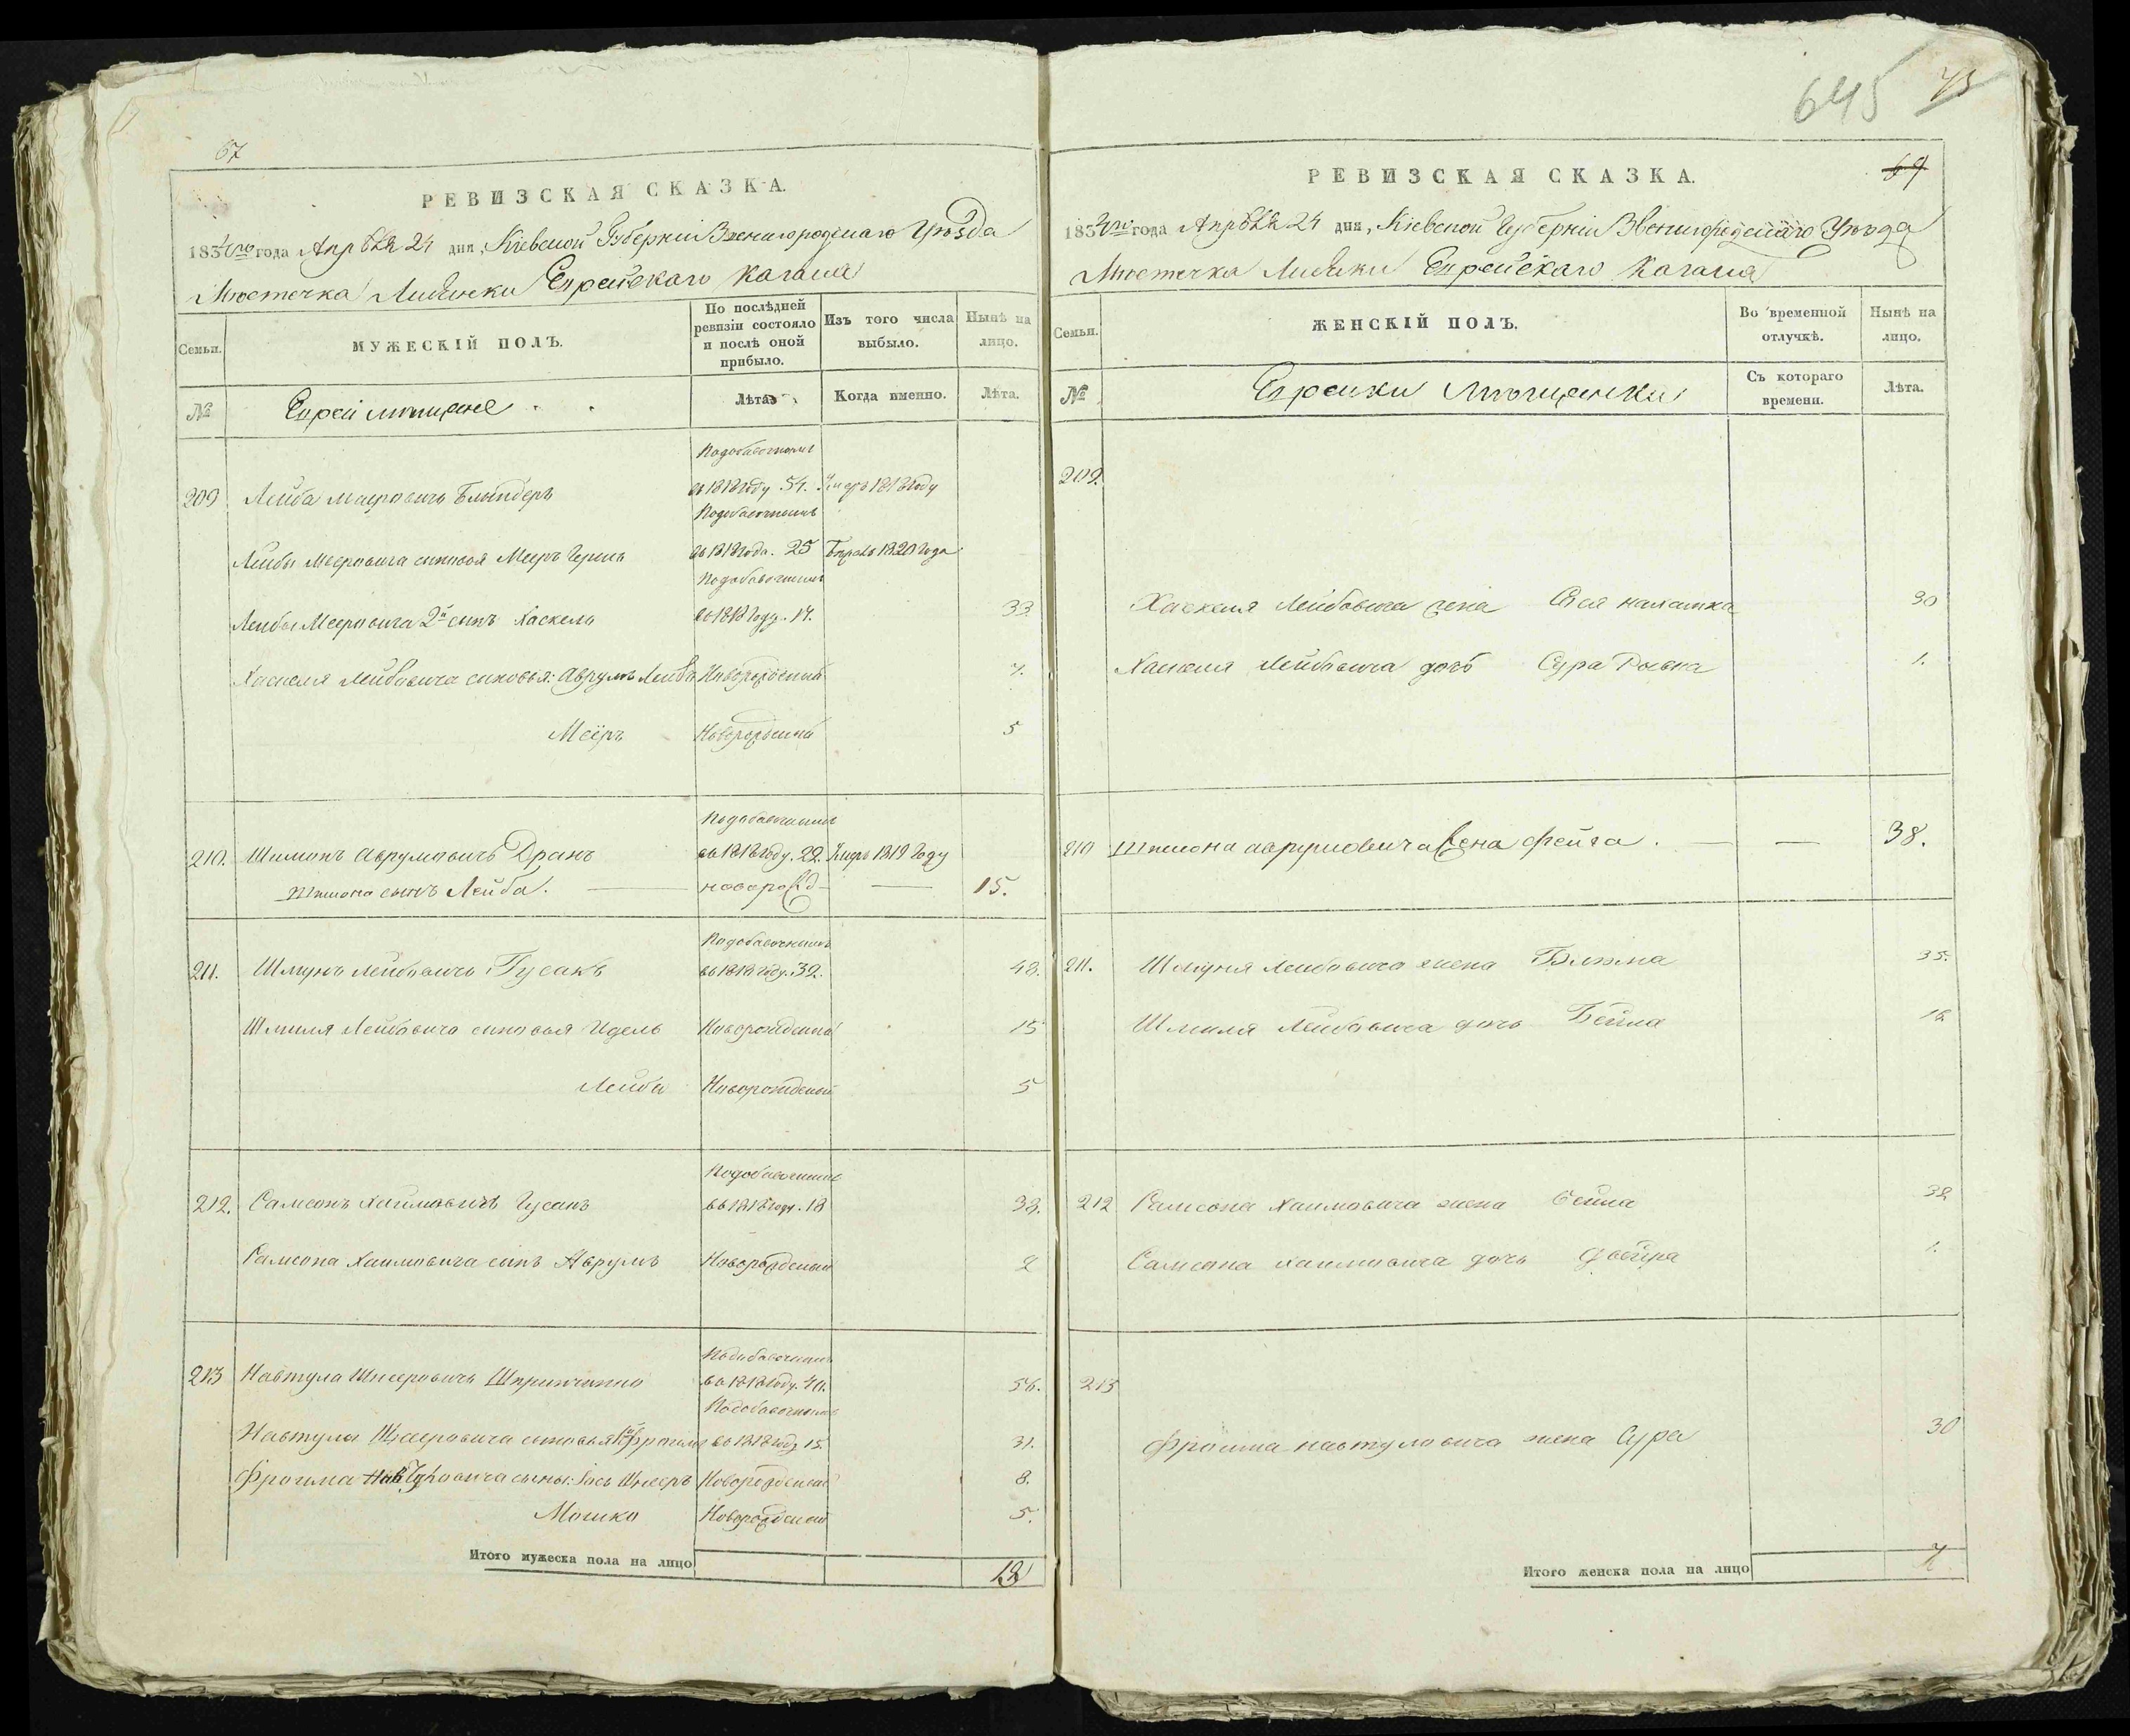 67
РЕВИЗСКАЯ СКАЗКА.
183 года Апрѣля 24 дня, Кіевской Губерніи Звенигородскаго Уѣзда
Мѣстечка Лисянки Еврейскаго Кагала
Семьи.
МУЖЕСКІЙ ПОЛЪ.
По послѣдней ревизіи состояло и послѣ оной прибыло.
Изъ того числа выбыло.
Нынѣ на лицо.
№
Еврей мѣщане
Лѣта.
Когда именно.
Лѣта.
По добавочнымъ
209 Лейба Меіровичъ въ 1818 году 54. Умеръ 1818 году
По добавочнымъ
Лейбы Меировича сыновья Мееръ въ 1818 года. 25 1820 года
По добавочнымъ
Лейбы Меировича 2й сынъ Хаскель въ 1818 году. 17. 33.
Хаскеля Лейбовича сыновья: Аврумъ Лейба Новорожденный 7.
Меіръ Новорожденный 5
По добавочнымъ
210. Шимонъ Аврумовичъ Дранъ въ 1818 году. 22. Умеръ 1819 году
Шимона сынъ Лейба. — новорожд — — 15.
По добавочнымъ
211. Лейбовичъ Гусакъ въ 1818 году. 32. 48.
Шмиля Лейбовича сыновья Идель Новорожденный 15
Лейба Новорожденный 5
По добавочнымъ
212. Самсонъ Хаимовичъ Гусакъ въ 1818 году. 18 33.
Самсона Хаимовича сынъ Аврумъ Новорожденный 2
По добавочнымъ
213 Навтула Шнееровичъ въ 1818 году. 40. 56.
По добавочнымъ
Навтулы Шнееровича сыновья 1й Фроимъ въ 1818 году 15. 31.
Фроима Навтуловича сыны: Іось Шнееръ Новорожденный 8.
Мошко Новорожденный 5.
Итого мужеска пола на лицо 12
645 73
69
РЕВИЗСКАЯ СКАЗКА.
183 года Апрѣля 24 дня, Кіевской Губерніи Звенигородскаго Уѣзда
Мѣстечка Лисянки Еврейскаго Кагала
Семьи.
ЖЕНСКІЙ ПОЛЪ.
Во временной отлучкѣ.
Нынѣ на лицо.
№
Еврейки Мѣщанки
Съ котораго времени.
Лѣта.
209.
Хаскеля Лейбовича жена 30
Хаскеля Лейбовича дочь Сура 1.
210 Шимона Аврумовича жена Фейга. — — 38.
211. Лейбовича жена 35.
Шмиля Лейбовича дочь Бейла 16
212 Самсона Хаимовича жена Бейла 32
Самсона Хаимовича дочь Двойра 1.
213
Фроима Навтуловича жена Сура 30
Итого женска пола на лицо 7